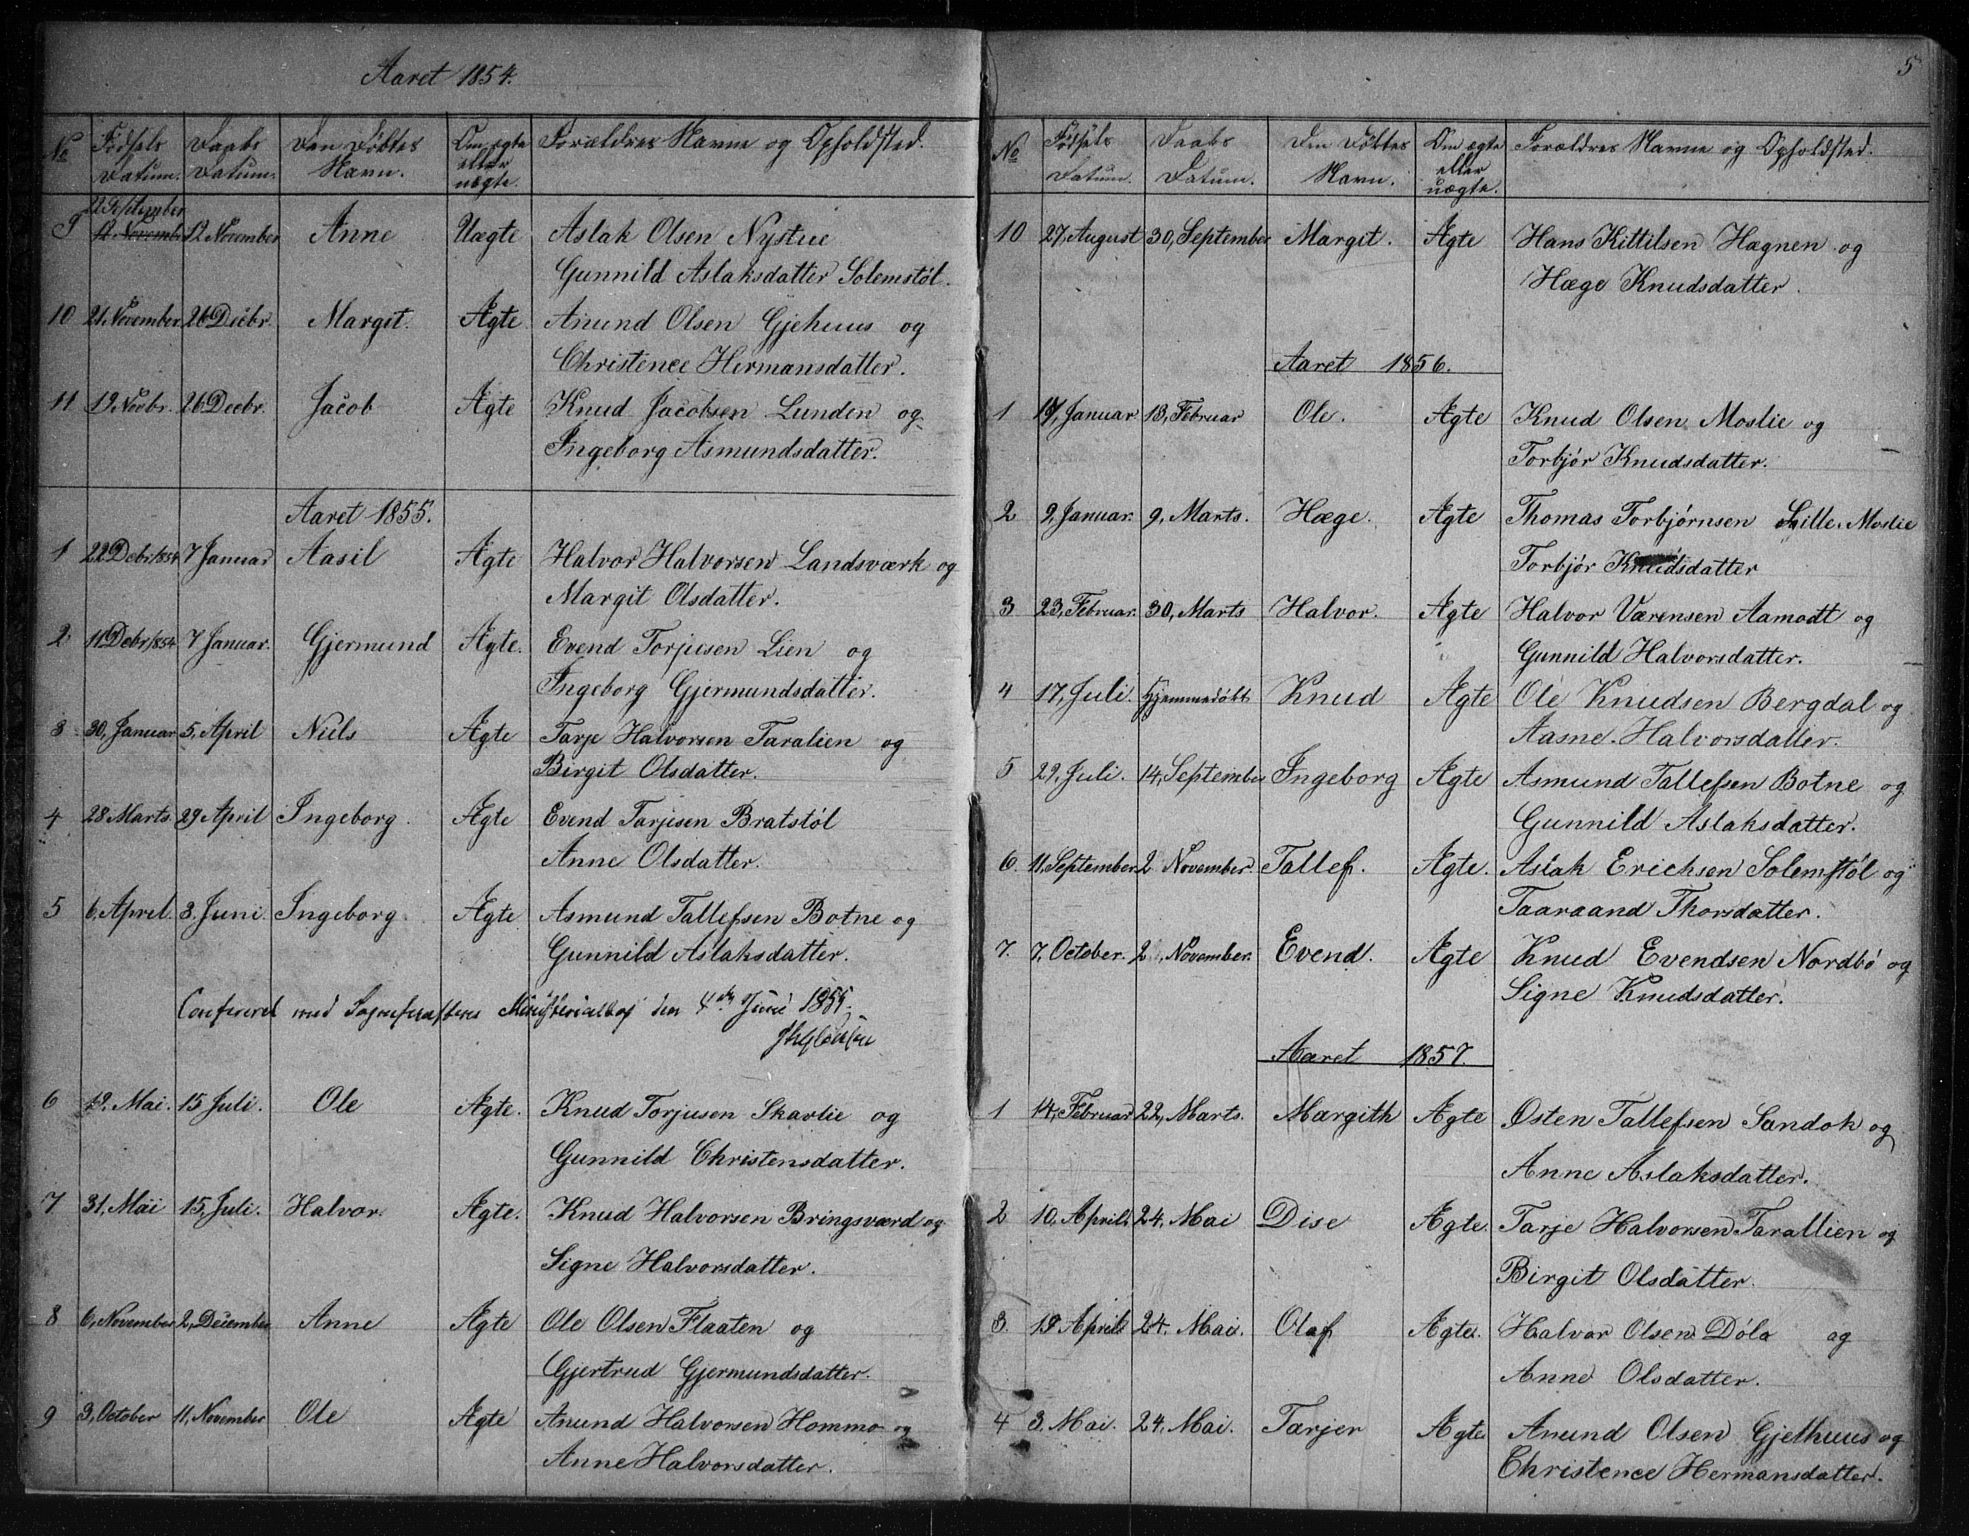 Aaret 1854.
No Fødsels Datum. Daabs Datum. Den Døbtes Navn. Om ægte eller uægte. Forældres Navne og Opholdsted.
9 12 September 12 November 12 November Anne Uægte Aslak Olsen Nystue
Gunnild Aslaksdatter Solemstøl.
10 21, November 26 Decbr. Margit. Ægte Anund Olsen Gjehuus og
Christence Hermansdatter.
11 19, Novbr. 26 Decbr. Jacob Ægte Knud Jacobsen Lunden og
Ingeborg Asmundsdatter.
Aaret 1855.
1 22 Debr/1854 7 Januar Aasil Ægte Halvor Halvorsen Landsværk og
Margit Olsdatter.
2 11 Debr/1854 7 Januar. Gjermund Ægte. Evend Torjusen Lien og
Ingeborg Gjermundsdatter.
3 30, Januar 5, April Niels Ægte Tarje Halvorsen Taralien og
Birgit Olsdatter.
4 28 Marts 29 April Ingeborg. Ægte Evend Tarjesen Bratstøl
Anne Olsdatter.
5 6, April. 3, Juni. Ingeborg. Ægte Asmund Tallefsen Botne og
Gunnild Aslaksdatter.
Confereret med Sognepræstens Ministerialbog den 4de Juni 1855.
6 12, Mai. 15 Juli. Ole Ægte. Knud Torjusen Skavlie og
Gunnild Christensdatter.
7 31, Mai 15, Juli. Halvor Ægte. Knud Halvorsen Bringsværd og
Signe Halvorsdatter.
8 6, November 2, December Anne Ægte Ole Olsen Flaaten og
Gjertrud Gjermundsdatter.
9 3, October 11, November Ole Ægte Anund Halvorsen Hommo og
Anne Halvorsdatter.
5
No Fødsels Datum. Daabs Datum. Den Døbtes Navn. Om ægte eller uægte. Forældres Navne og Opholdsted.
10 27, August 30, September Margit. Ægte Hans Kittilsen Hægnen og
Hæge Knudsdatter.
Aaret 1856.
1 17, Januar 13, Februar Ole. Ægte Knud Olsen Moslie og
Torbjør Knudsdatter.
2 2, Januar. 9, Marts. Hæge. Ægte Thomas Torbjørnsen Lille Moslie
Torbjør Knudsdatter
3 23, Februar. 30, Marts Halvor. Ægte Halvor Værensen Aamodt og
Gunnild Halvorsdatter.
4 17, Juli. Hjemmedøbt Knud Ægte Ole Knudsen Bergdal og
Aasne Halvorsdatter.
5 29, Juli. 14, September Ingeborg Ægte Asmund Tallefsen Botne og
Gunnild Aslaksdatter.
6. 11, September 2 November. Tallef. Ægte. Aslak Erichsen Solemstøl og
Taaraand Thorsdatter.
7. 7, October. 2, November. Evend. Ægte Knud Evendsen Nordbø og
Signe Knudsdatter.
Aaret 1857.
1 14, Februar 22, Marts. Margith Ægte Østen Tallefsen Sandok og
Anne Aslaksdatter.
2 10, April 24, Mai Dise Ægte. Tarje Halvorsen Tarallien og
Birgit Olsdatter.
3. 19 April 24. Mai. Olaf Ægte. Halvor Olsen Døla og
Anne Olsdatter.
4 3. Mai. 24. Mai. Tarjer Ægte. Anund Olsen Gjelhuus og
Christence Hermansdatter.